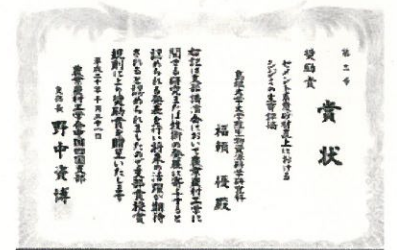 第二号
賞状
奨励賞
セメント系底砂材料上における
シジミの生育評価
島根大学大学院生物資源科学研究科
福頼 優 殿
右記は支部講演会において農業農村工学に
関する研究または技術の発展に寄与すると
認められる発表を行い将来の活躍が期待
されると認められましたので支部賞授賞
規則により奨励賞を贈呈いたします
平成二十年十月二十一日
農業農村工学会中国四国支部
支部長 野中 資博